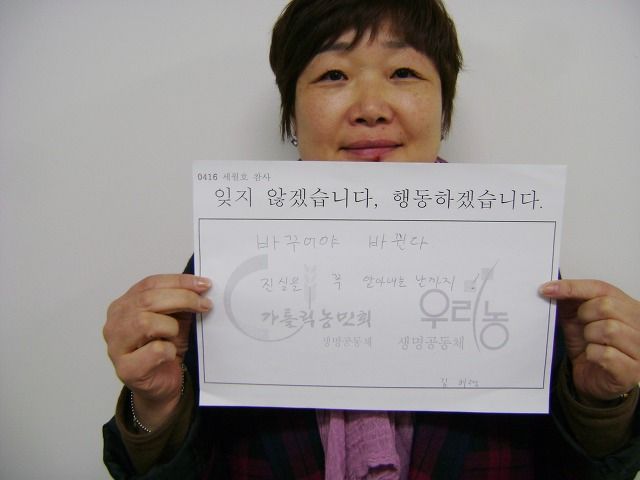 0416 세월호 참사
잊지 않겠습니다, 행동하겠습니다.
바꾸어야 바뀐다
진실을 꼭 알아내는 날까지!
가톨릭농민회 우리농
생명공동체 생명공동체
김